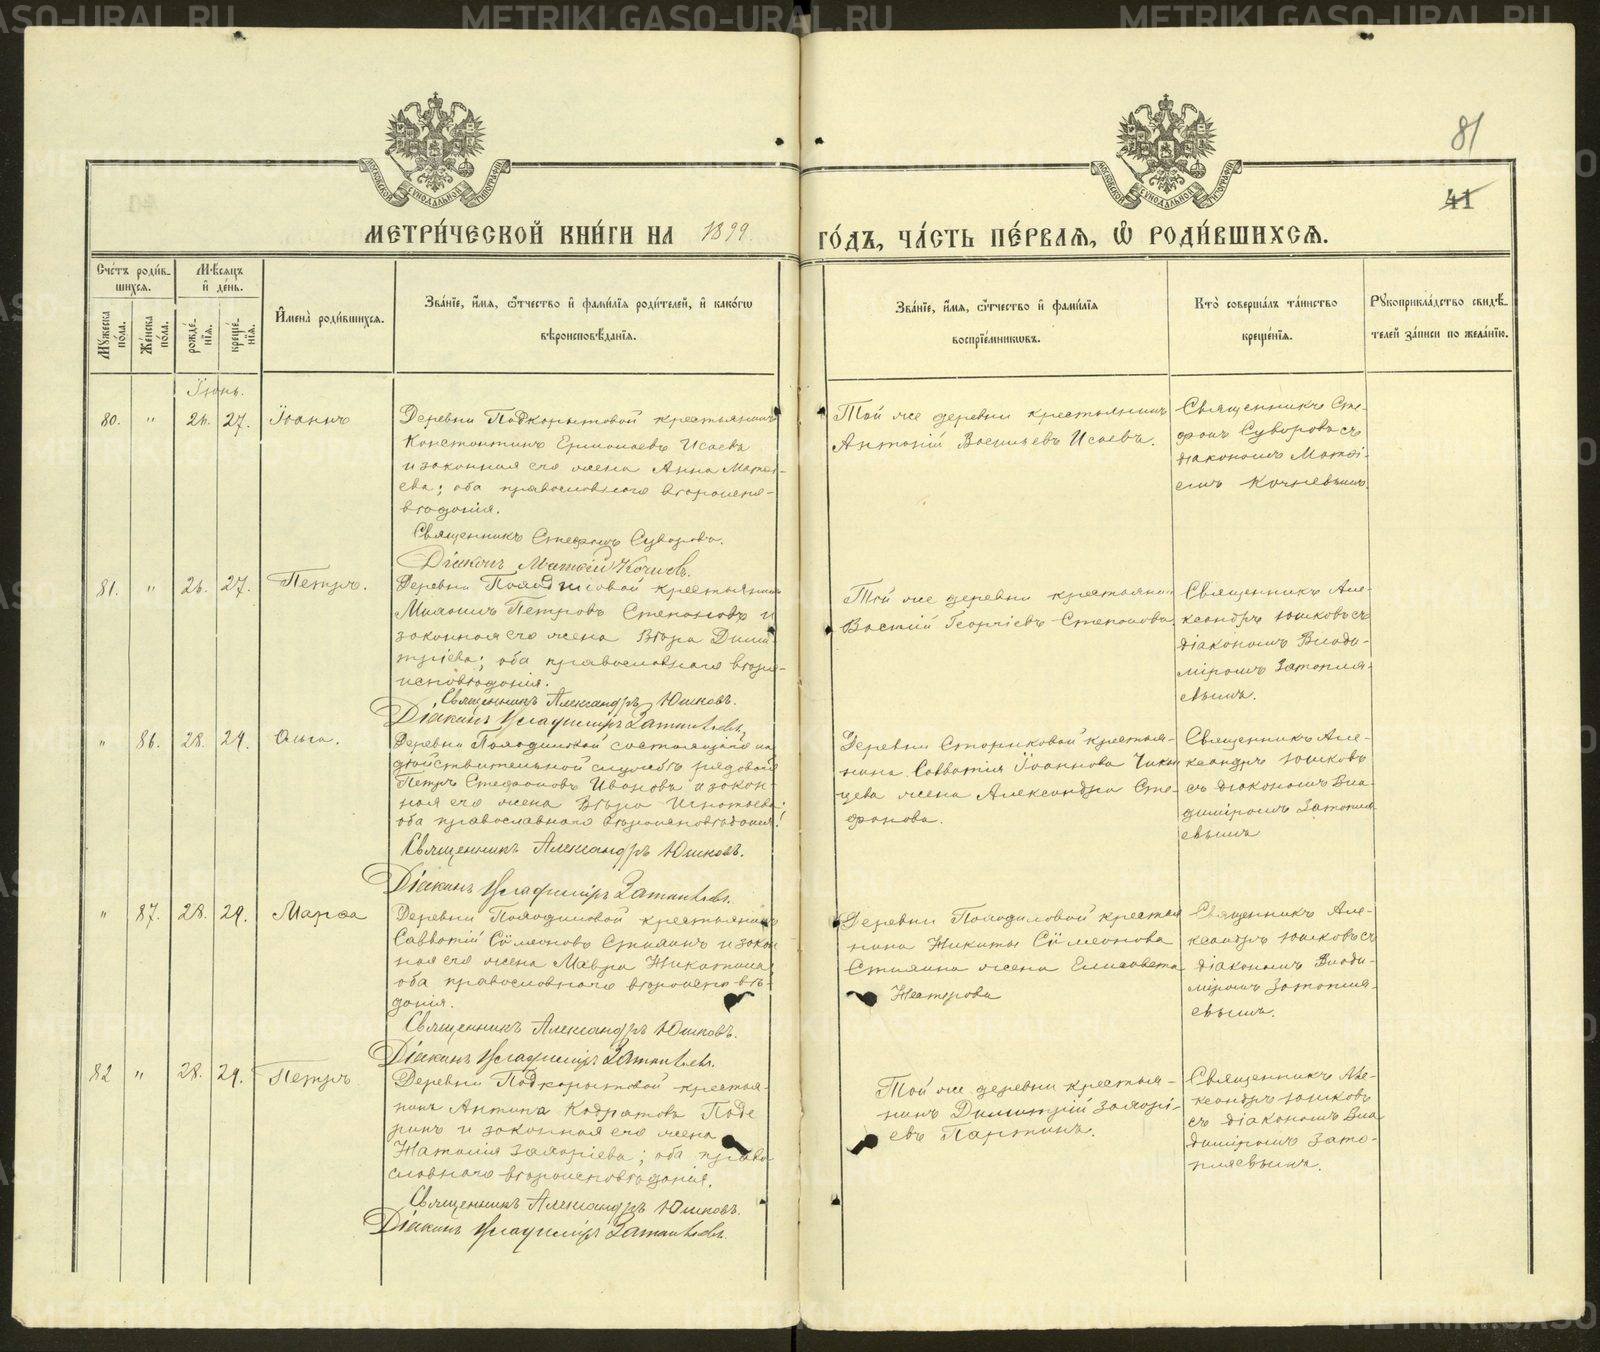 METRIKI.GASO-URAL.RU
81
41
МОСКОВСКОЙ СѴНОДАЛЬНОЙ ТИПОГРАФІИ
МЕТРИ́ЧЕСКОЙ КНИ́ГИ НА 1899
ГО́ДЪ, ЧА́СТЬ ПЕ́РВАЯ, Ѡ РОДИ́ВШИХСЯ.
Сче́тъ роди́в-
шихся.
Мꙋжеска по́ла.
Же́нска по́ла.
Мѣ́сяцъ
и҆ де́нь.
рожде́-
нїя.
креще́-
нїя.
И҆мена̀ роди́вшихся.
Зва́нїе, и҆́мя, ѻ҆́тчество и҆ фами́лїя роди́телей, и҆ како́гѡ
вѣроисповѣ́данїя.
Зва́нїе, и҆́мя, ѻ҆́тчество и҆ фами́лїя
воспрїе́мникѡвъ.
Кто̀ соверша́лъ та́инство
креще́нїя.
Рꙋкоприкла́дство свидѣ́-
телей за́писи по жела́нїю.
Іюнь.
80. " 26. 27. Іоаннъ
Деревни Подкорытовой крестьянинъ
Константинъ Ермолаевъ Исаевъ
и законная его жена Анна Матѳі-
ева; оба православнаго вѣроиспо-
вѣданія.
Священникъ Стефанъ Суворовъ.
Діаконъ Матѳій Кочневъ.
Той же деревни крестьянинъ
Антоній Васильевъ Исаевъ.
Священникъ Сте-
фанъ Суворовъ съ
діакономъ Матѳі-
емъ Кочневымъ.
81. " 26. 27. Петръ.
Деревни крестьянинъ
Петровъ Степановъ и
законная его жена Вѣра Дими-
тріева; оба православнаго вѣро-
исповѣданія.
Священникъ Александръ Юшковъ.
Діаконъ Владиміръ Затопляевъ.
Той же деревни крестьянинъ
Василій Георгіевъ Степановъ.
Священникъ Але-
ксандръ Юшковъ съ
діакономъ Влади-
міромъ Затопля-
евымъ.
" 86. 28. 29. Ольга.
Деревни состоящаго на
дѣйствительной службѣ рядовой
Петръ Стефановъ Ивановъ и закон-
ная его жена Вѣра Игнатьева;
оба православнаго вѣроисповѣданія.
Священникъ Александръ Юшковъ.
Діаконъ Владиміръ Затопляевъ.
Деревни Стариковой крестья-
нина Савватія Іоаннова
жена Александра Сте-
фанова.
Священникъ Але-
ксандръ Юшковъ
съ діакономъ Вла-
диміромъ Затопля-
евымъ
" 87. 28. 29. Марѳа
Деревни Полодиловой крестьянинъ
Савватій Сѷмеоновъ Стихинъ и закон-
ная его жена Мавра Никитина
оба православнаго вѣроисповѣ-
данія.
Священникъ Александръ Юшковъ.
Діаконъ Владиміръ Затопляевъ.
Деревни Полодиловой крестья-
нина Никиты Сѷмеонова
Стихина жена Елисавета
Нестерова
Священникъ Але-
ксандръ Юшковъ съ
діакономъ Влади-
міромъ Затопля-
евымъ.
82 " 28. 29. Петръ
Деревни Подкорытовой крестья-
нинъ Антипа Кодратовъ
и законная его жена
Наталія Захаріева; оба право-
славнаго вѣроисповѣданія.
Священникъ Александръ Юшковъ.
Діаконъ Владиміръ Затопляевъ.
Той же деревни крестья-
нинъ Димитрій Захарі-
евъ Партинъ.
Священникъ Але-
ксандръ Юшковъ
съ діакономъ Вла-
диміромъ Зато-
пляевымъ.